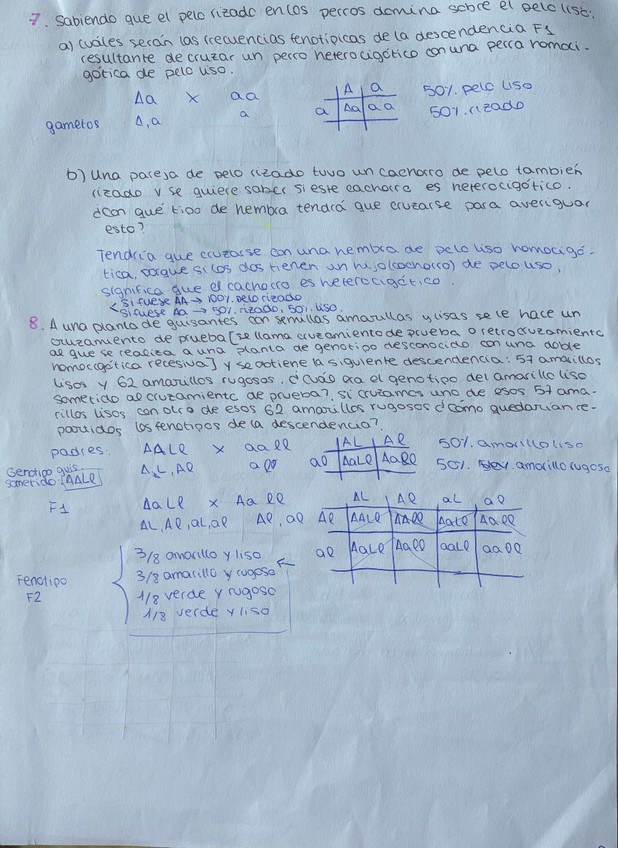 7. Sabiendo que el pelo rizado en los perros domina sobre el pelo liso:
a) Cuáles serán las frecuencias fenotípicas de la descendencia F1
resultante de cruzar un perro heterocigótico con una perra homoci-
gótica de pelo liso.
Aa x aa
gametos A,a a
A a
a Aa aa
50% pelo liso
50% rizado
b) Una pareja de pelo rizado tuvo un cachorro de pelo también
rizado y se quiere saber si este cachorro es heterocigótico.
¿Con qué tipo de hembra tendrá que cruzarse para averiguar
esto?
Tendría que cruzarse con una hembra de pelo liso homocigó-
tica, porque si los dos tienen un hijo (cachorro) de pelo liso,
significa que el cachorro es heterocigótico.
Si fuese AA → 100% pelo rizado
Si fuese Aa → 50% rizado, 50% liso.
8. A una planta de guisantes con semillas amarillas y lisas se le hace un
cruzamiento de prueba [se llama cruzamiento de prueba o retrocruzamiento
al que se realiza a una planta de genotipo desconocido con una doble
homocigótica recesiva] y se obtiene la siguiente descendencia: 57 amarillos
lisos y 62 amarillos rugosos. ¿Cuál era el genotipo del amarillo liso
sometido al cruzamiento de prueba?, si cruzamos uno de esos 57 ama-
rillos lisos con otro de esos 62 amarillos rugosos ¿cómo quedarían re-
partidos los fenotipos de la descendencia?.
padres: AALl x aall
Genotipo guis. sometido: AALl
A,L, Al al
AL Al
al AaLl Aall
50% amarillo liso
50% amarillo rugoso
F1 AaLl x Aall
AL, Al, aL, al Al, al
AL Al aL al
Al AALl AAll AaLl Aall
al AaLl Aall aaLl aall
Fenotipo
F2
3/8 amarillo y liso
3/8 amarillo y rugoso
1/8 verde y rugoso
1/8 verde y liso